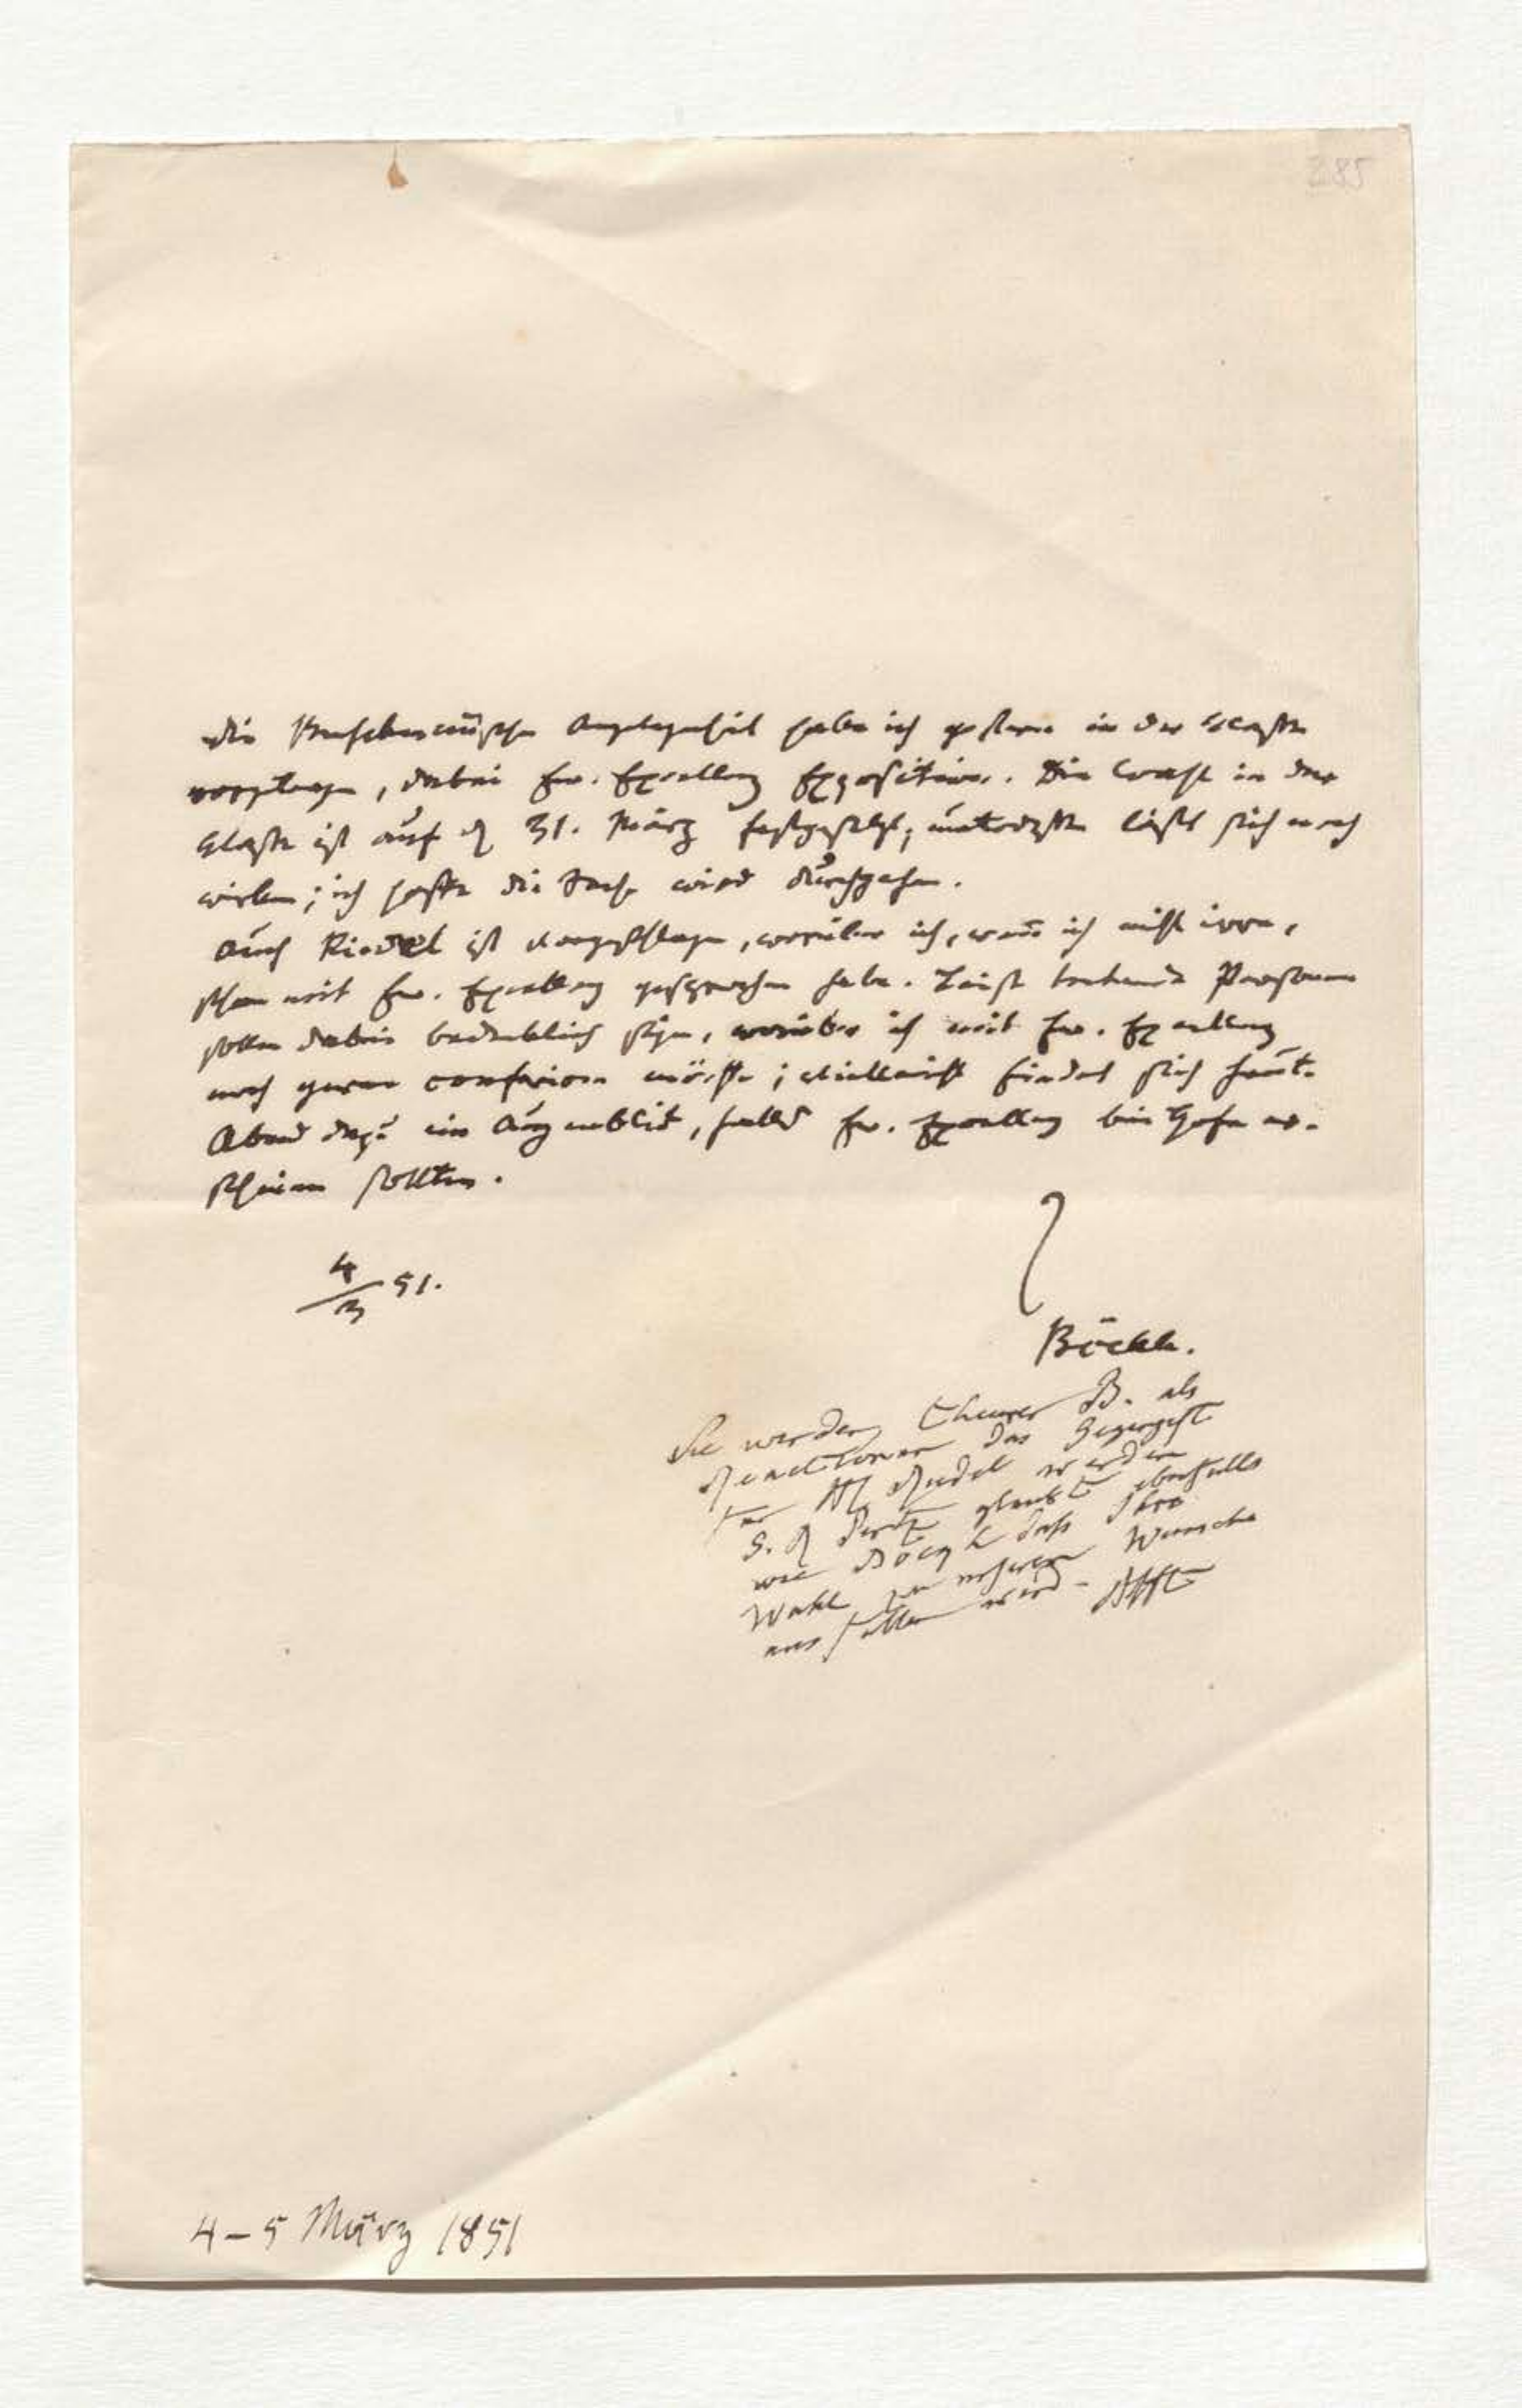 285
Die Buschmannsche Angelegenheit habe ich gestern in der Classe
vorgetragen, dabei Ew. Excellenz Exposition. Die Wahl in der
Classe ist auf d 31. März festgesetzt; unterdessen läßt sich noch
wirken; ich hoffe die Sache wird durchgehen.
Auch Riedel ist vorgeschlagen, worüber ich, wenn ich nicht irre,
schon mit Ew. Excellenz gesprochen habe. Leicht Personen
sollen dabei bedenklich seyn, worüber ich mit Ew. Excellenz
noch gerne conferiren möchte; vielleicht findet sich heute
Abend dazu ein Augenblick, falls Ew. Excellenz bei Hofe er-
scheinen sollten.
4/3 51.
Böckh.
Sie werden Theurer B. als
Reactionär das Gegengift
für Riedel werden
glaubt ebenfalls
wie Böckh daß Ihre
Wahl zu unserem Wunsche
ausfallen wird –
4–5 März 1851